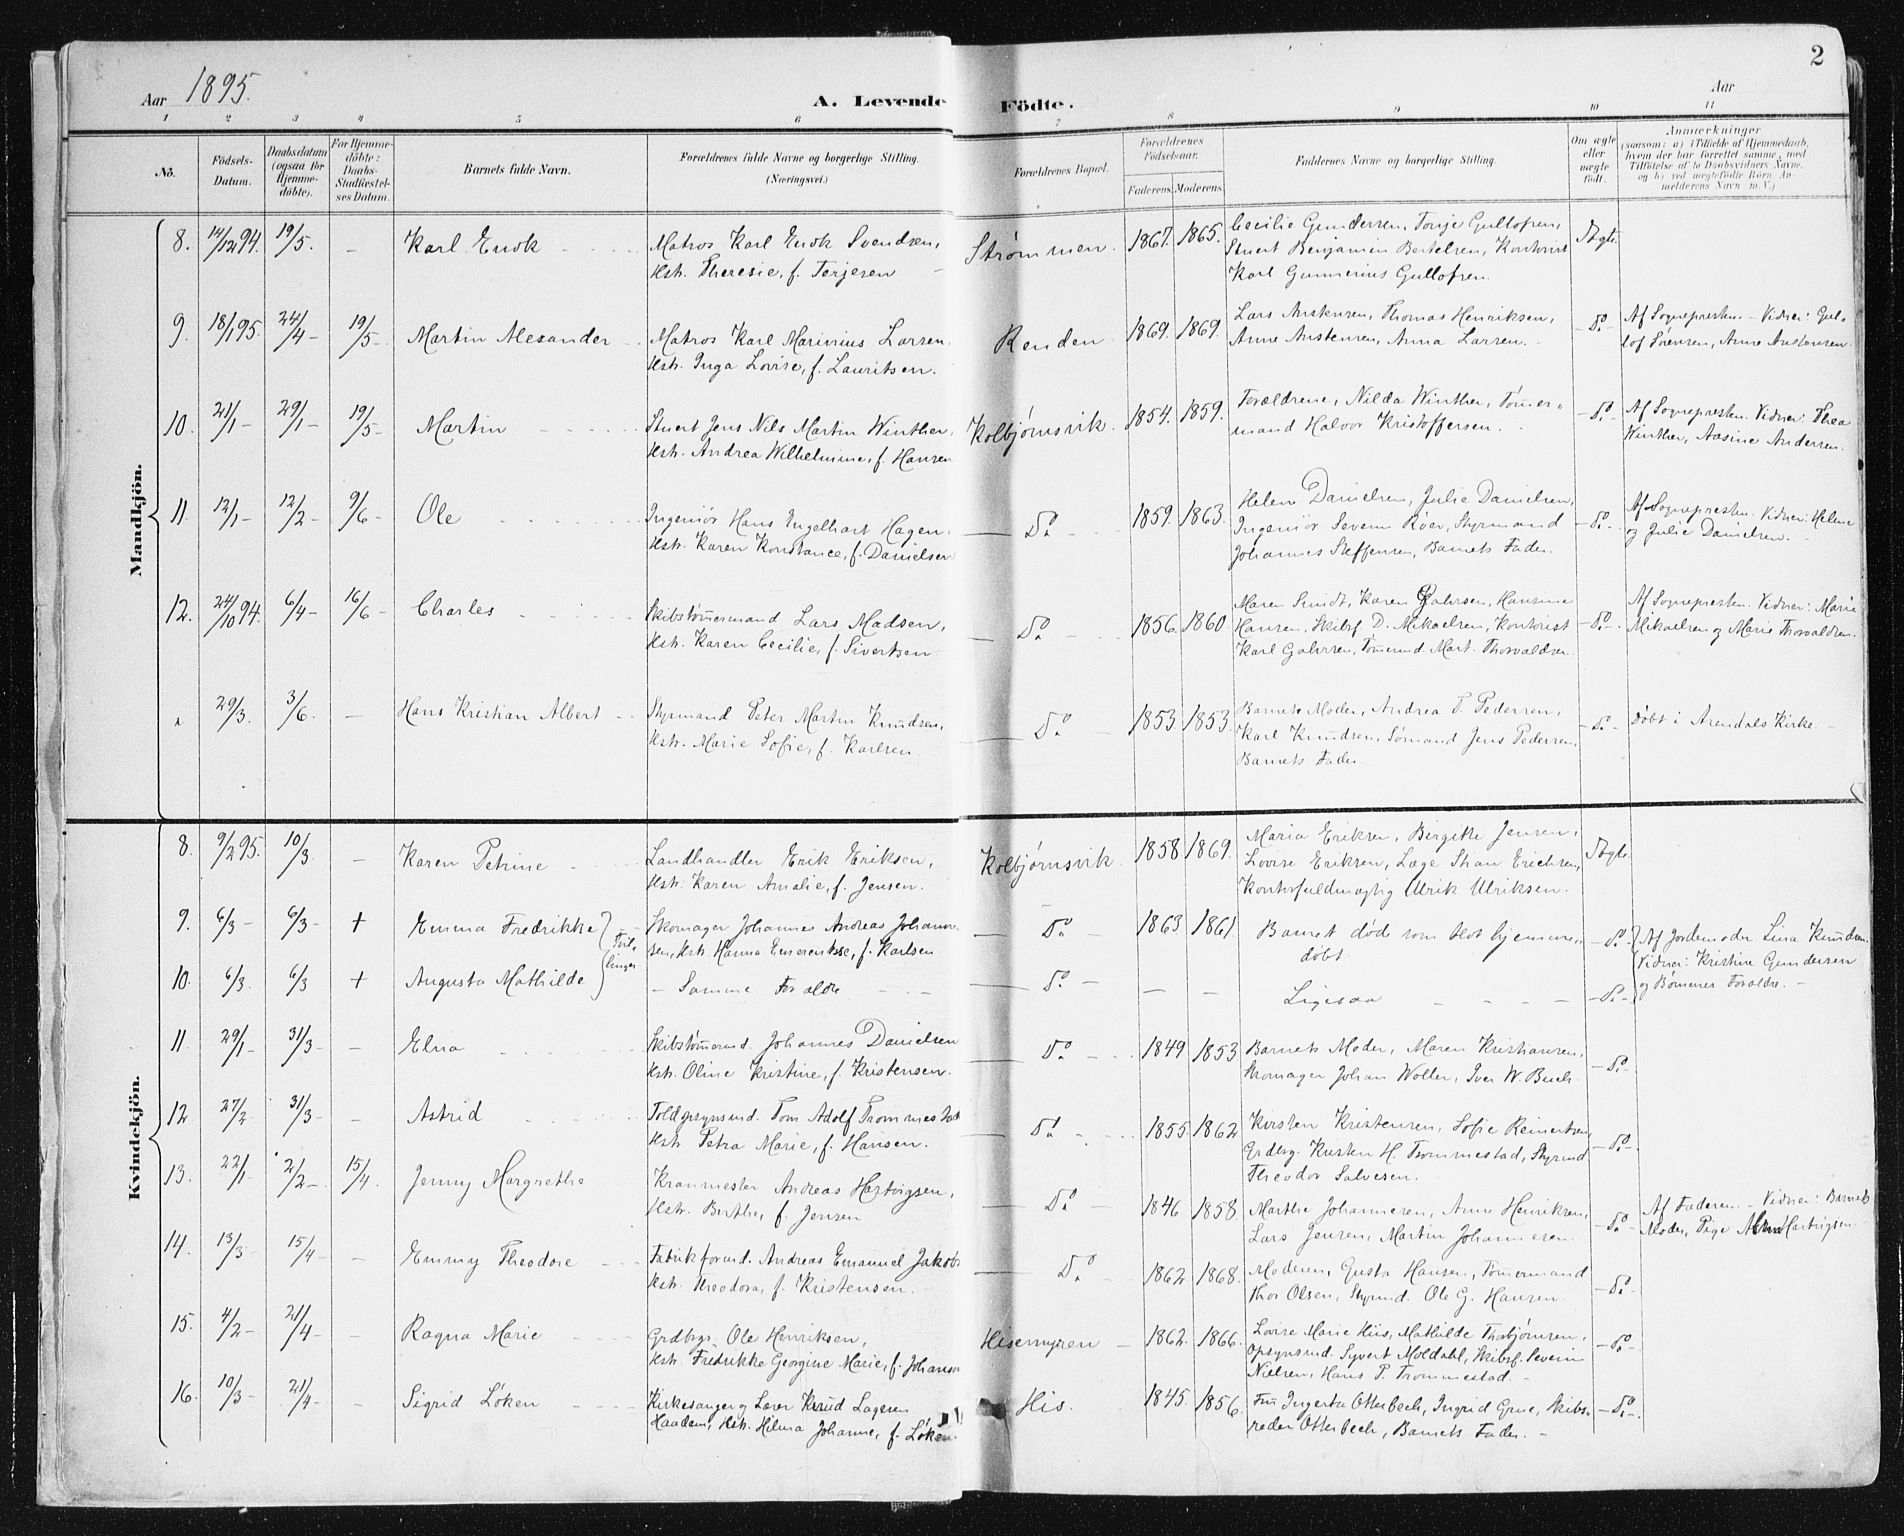 2
Aar 1895.
A. Levende Födte.
Aar
1 2 3 4 5 6 7 8 9 10 11
No.
Födsels-Datum.
Daabsdatum (ogsaa for Hjemmedöbte).
For Hjemmedöbte: Daabs-Stadfæstelses Datum.
Barnets fulde Navn.
Forældrenes fulde Navne og borgerlige Stilling. (Næringsvei.)
Forældrenes Bopæl.
Forældrenes Födselsaar.
Faderens. Moderens.
Faddernes Navne og borgerlige Stilling.
Om ægte eller uægte født.
Anmærkninger
(saasom: a) i Tilfælde af Hjemmedaab, hvem der har forrettet samme, med Tilföielse af to Daabsvidners Navne, og b) ved uægtefödte Börn Anmelderens Navn m. V.)
Mandkjön.
8. 14/12 94. 19/5. – Karl Enok
Matros Karl Enok Svendsen,
Hstr. Theresie, f. Terjesen
Strømmen. 1867. 1865.
Cecilie Gundersen, Torije Gullofsen,
Stuert Benjamin Bertelsen, Kontorist
Karl Gunnerius Gullofsen.
Ægte.
9. 18/1 95. 24/4 – 19/5 – Martin Alexander
Matros Karl Marinius Larsen,
Hstr. Inga Lovise, f. Lauritsen.
Renden 1869. 1869.
Lars Anstensen, Thomas Henriksen,
Anne Anstensen, Anna Larsen.
– Do –
Af Sognepresten – Vidner: Gullof Sørensen, Anne Anstensen.
10. 21/1 – 29/1 – 19/5 – Martin
Stuert Jens Nils Martin Winther,
Hstr. Andrea Wilhelmine, f. Hansen
Kolbjørnsvik. 1854. 1859.
Forældrene, Nilda Winther, Tømmermand Halvor Kristoffersen.
– Do –
Af Sognepresten. Vidner: Thea
Winther, Aasine Andersen.
11. 12/1 – 12/2 – 9/6 – Ole
Ingeniør Hans Engelhart Hagen,
Hstr. Karen Konstance, f. Danielsen
– Do – 1859. 1863.
Helene Danielsen, Julie Danielsen,
Ingeniør Severin Røer, Styrmand
Johannes Steffensen, Barnets Fader.
– Do –
Af Sognepresten. Vidner: Helene
og Julie Danielsen.
12. 24/10 94. 6/4 – 16/6 – Charles
Skibstømmermand Lars Madsen,
Hstr. Karen Cecilie, f. Sivertsen
– Do – 1856. 1860.
Maren Smidt, Karen Gahrsen, Hansine
Hansen, Skibsf. D. Mikaelsen, Kontorist
Karl Gahrsen, Tømmermd. Mart. Thorvaldsen.
– Do –
Af Sognepresten. Vidner: Marie
Mikaelsen og Marie Thorvaldsen.
29/3. 3/6. – Hans Kristian Albert
Styrmand Peter Martin Knudsen,
Hstr. Marie Sofie, f. Karlsen.
– Do – 1853 1853.
Barnets Moder, Andrea T. Pedersen,
Karl Knudsen, Sømand Jens Pedersen,
Barnets Fader.
– Do –
Døbt i Arendals Kirke. –
Kvindekjön.
8. 9/2 95. 10/3. – Karen Petrine
Landhandler Erik Eriksen,
Hstr. Karen Amalie, f. Jensen.
Kolbjørnsvik. 1858 1869.
Maria Eriksen, Birgitte Jensen,
Lovise Eriksen, Læge Stian Erichsen,
Kontorfuldmægtig Ulrik Ulriksen.
Ægte.
9. 6/3 – 6/3 – + Emma Fredrikke } Tvillinger
Skomager Johannes Andreas Johannessen, Hstr. Hanna Emerentse, f. Karlsen.
– Do – 1863 1861.
Barnet døde som blot hjemmedøbt.
– Do –
Af Jordemoder Lina Knudsen.
Vidner: Kristine Gundersen
og Børnenes Forældre. –
10. 6/3. 6/3 + Augusta Mathilde
– Samme Forældre – –
– Do – – –
Ligesaa – – – –
– Do –
11 29/1 – 31/3 – – Elna
Skibstømmermd. Johannes Danielsen
Hstr. Oline Kristine, f. Kristensen.
– Do – 1849 1853
Barnets Moder, Maren Kristiansen,
Skomager Johan Woller, Iver W. Buch.
– Do –
12 27/2 – 31/3 – – Astrid
Toldopsynsmd. Tom Adolf Trommestad
Hstr. Petra Marie, f. Hansen.
– Do – 1855. 1862
Kirsten Kristensen, Sofie Reinertsen,
Grdbrg. Kristen H. Trommestad, Styrmd.
Theodor Salvesen.
– Do –
13. 22/1 – 2/2 – 15/4. Jenny Margrethe
Kranmester Andreas Hartvigsen,
Hstr. Berthe, f. Jensen
– Do – 1846 1858
Marthe Johannesen, Anne Henriksen,
Lars Jensen, Martin Johannesen.
– Do –
Af Faderen. – Vidner: Barnets
Moder, Pige Alma Hartvigsen.
14. 13/3 – 15/4 – – Emmy Theodore
Fabrikformd. Andreas Emanuel Jakobs
Hstr. Theodora, f. Kristensen.
– Do – 1862 1868.
Moderen, Gusta Hansen, Tømmermand
Thor Olsen, Styrmd. Ole G. Hansen.
– Do –
15. 4/2 – 21/4 – – Ragna Marie
Grdbrgr. Ole Henriksen,
Hstr. Fredrikke Georgine Marie, f. Johansen
Hisemyren – 1862. 1866.
Lovise Marie Hiis, Mathilde Thorbjørnsen,
Opsynsmd. Syvert Moldahl, Skibsf. Severin
Nielsen, Hans P. Trommestad. –
– Do –
16. 10/3 – 21/4 – – Sigrid Løken
Kirkesanger og Lærer Knud Lagesen
Haadem, Hstr. Hilma Johanne, f. Løken.
His. 1845. 1856.
Fru Ingerta Otterbech, Ingrid Grue, Skibsreder Otterbech, Barnets Fader. –
– Do –